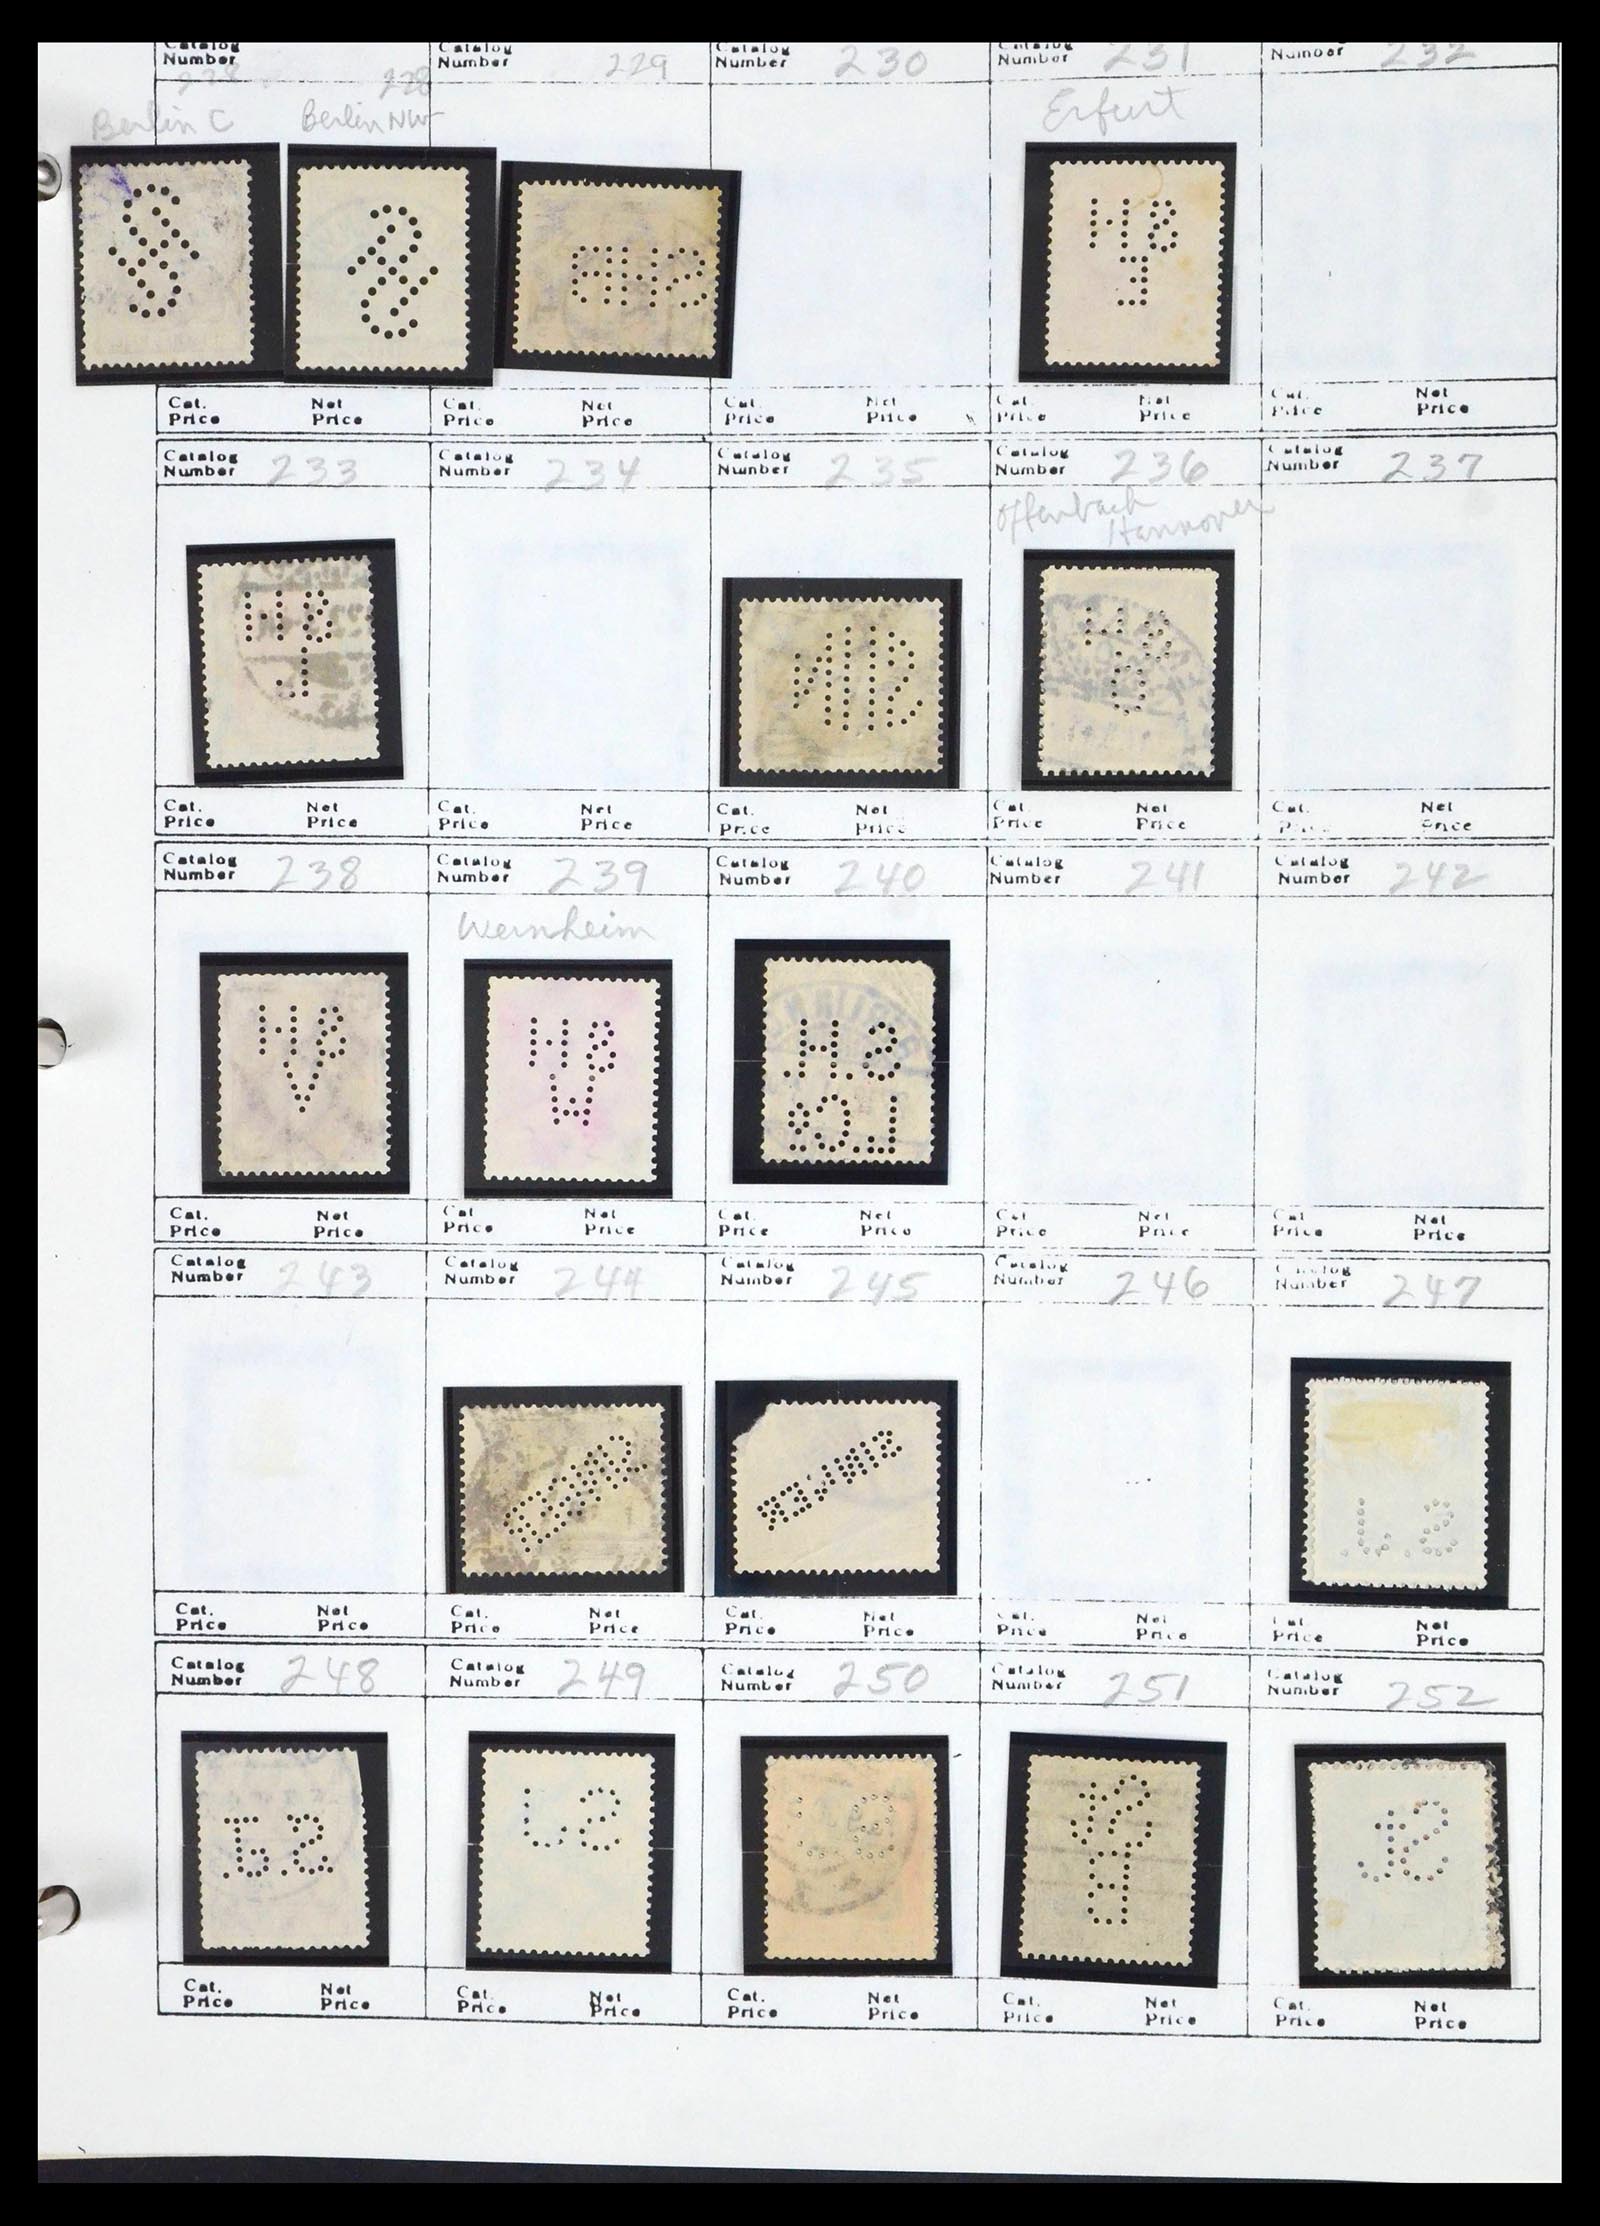 Catalog Number 228 228
Catalog Number 229
Catalog Number 230
Catalog Number 231
Number 232
Berlin C
Berlin NW
Erfurt
Cat. Price Net Price
Cat. Price Net Price
Cat. Price Net Price
Cat. Price Net Price
Cat. Price Net Price
Catalog Number 233
Catalog Number 234
Catalog Number 235
Catalog Number 236
Catalog Number 237
Offenbach
Hannover
Cat. Price Net Price
Cat. Price Net Price
Cat. Price Net Price
Cat. Price Net Price
Cat. Price Net Price
Catalog Number 238
Catalog Number 239
Catalog Number 240
Catalog Number 241
Catalog Number 242
Weinheim
Cat. Price Net Price
Cat. Price Net Price
Cat. Price Net Price
Cat. Price Net Price
Cat. Price Net Price
Catalog Number 243
Catalog Number 244
Catalog Number 245
Catalog Number 246
Catalog Number 247
Cat. Price Net Price
Cat. Price Net Price
Cat. Price Net Price
Cat. Price Net Price
Cat. Price Net Price
Catalog Number 248
Catalog Number 249
Catalog Number 250
Catalog Number 251
Catalog Number 252
Cat. Price Net Price
Cat. Price Net Price
Cat. Price Net Price
Cat. Price Net Price
Cat. Price Net Price